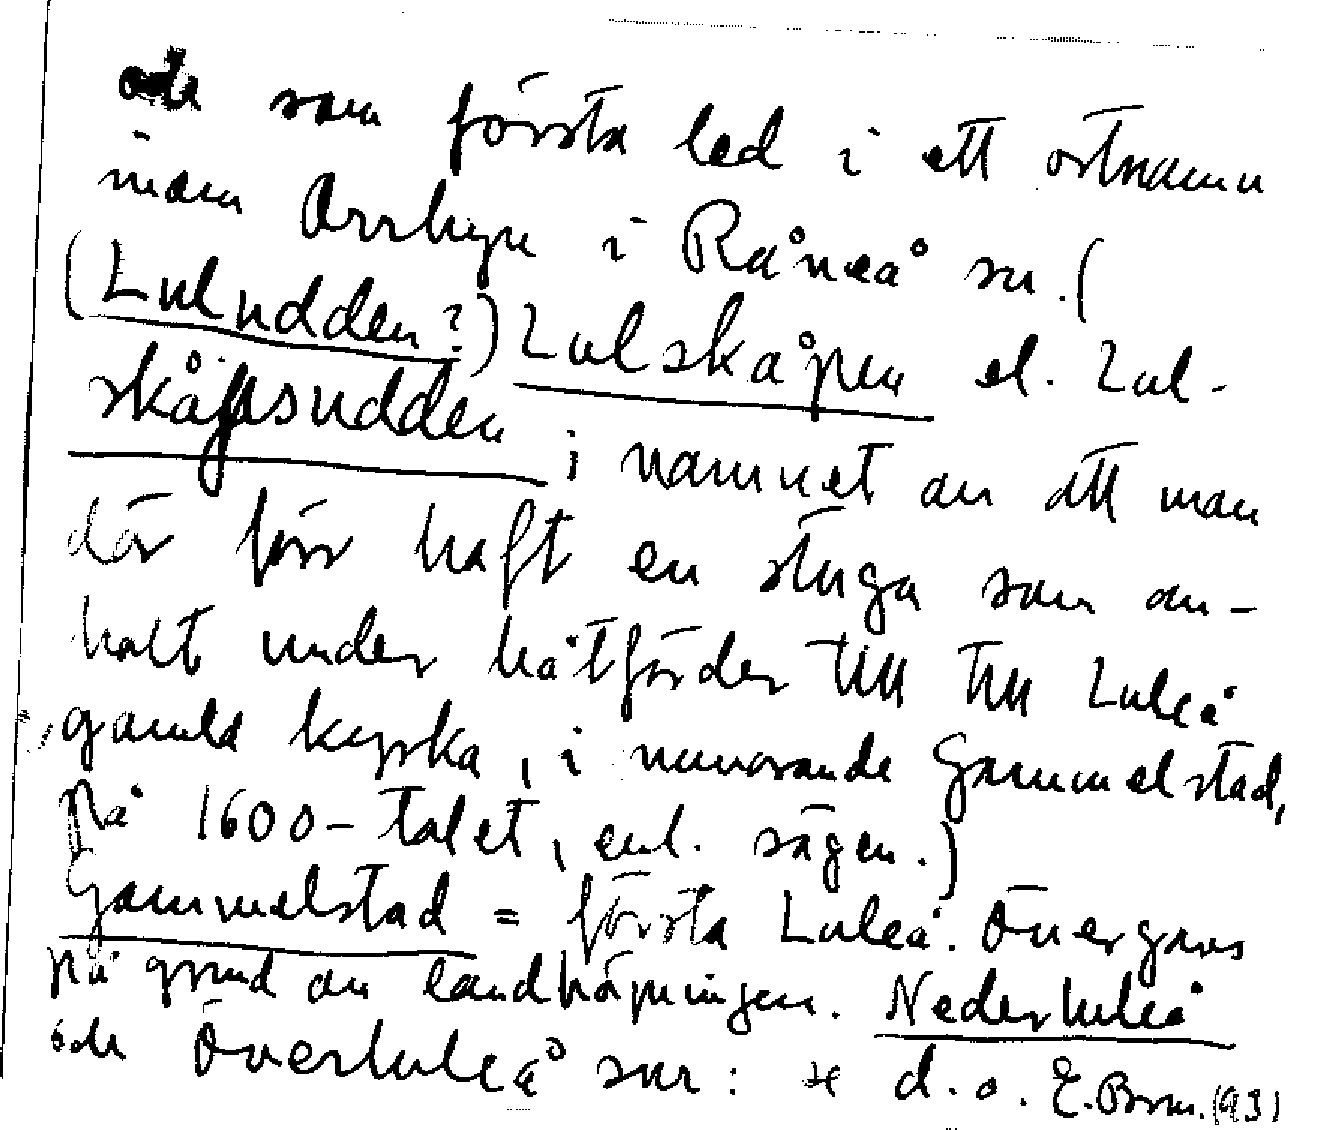 och som första led i ett ortnamn
inom Orrbyn i Råneå sn. (
(Luludden?) Lulskåpen el. Lul-
skåpsudden i namnet av att man
där förr haft en stuga som an-
halt under båtfärder till till Luleå
gamla kyrka, i nuvarande Gammelstad,
på 1600-talet, enl. sägen.)
Gammelstad = första Luleå. Övergavs
på grund av landhöjningen. Nederluleå
och Överluleå snr: d.o. E.Brm. (93)